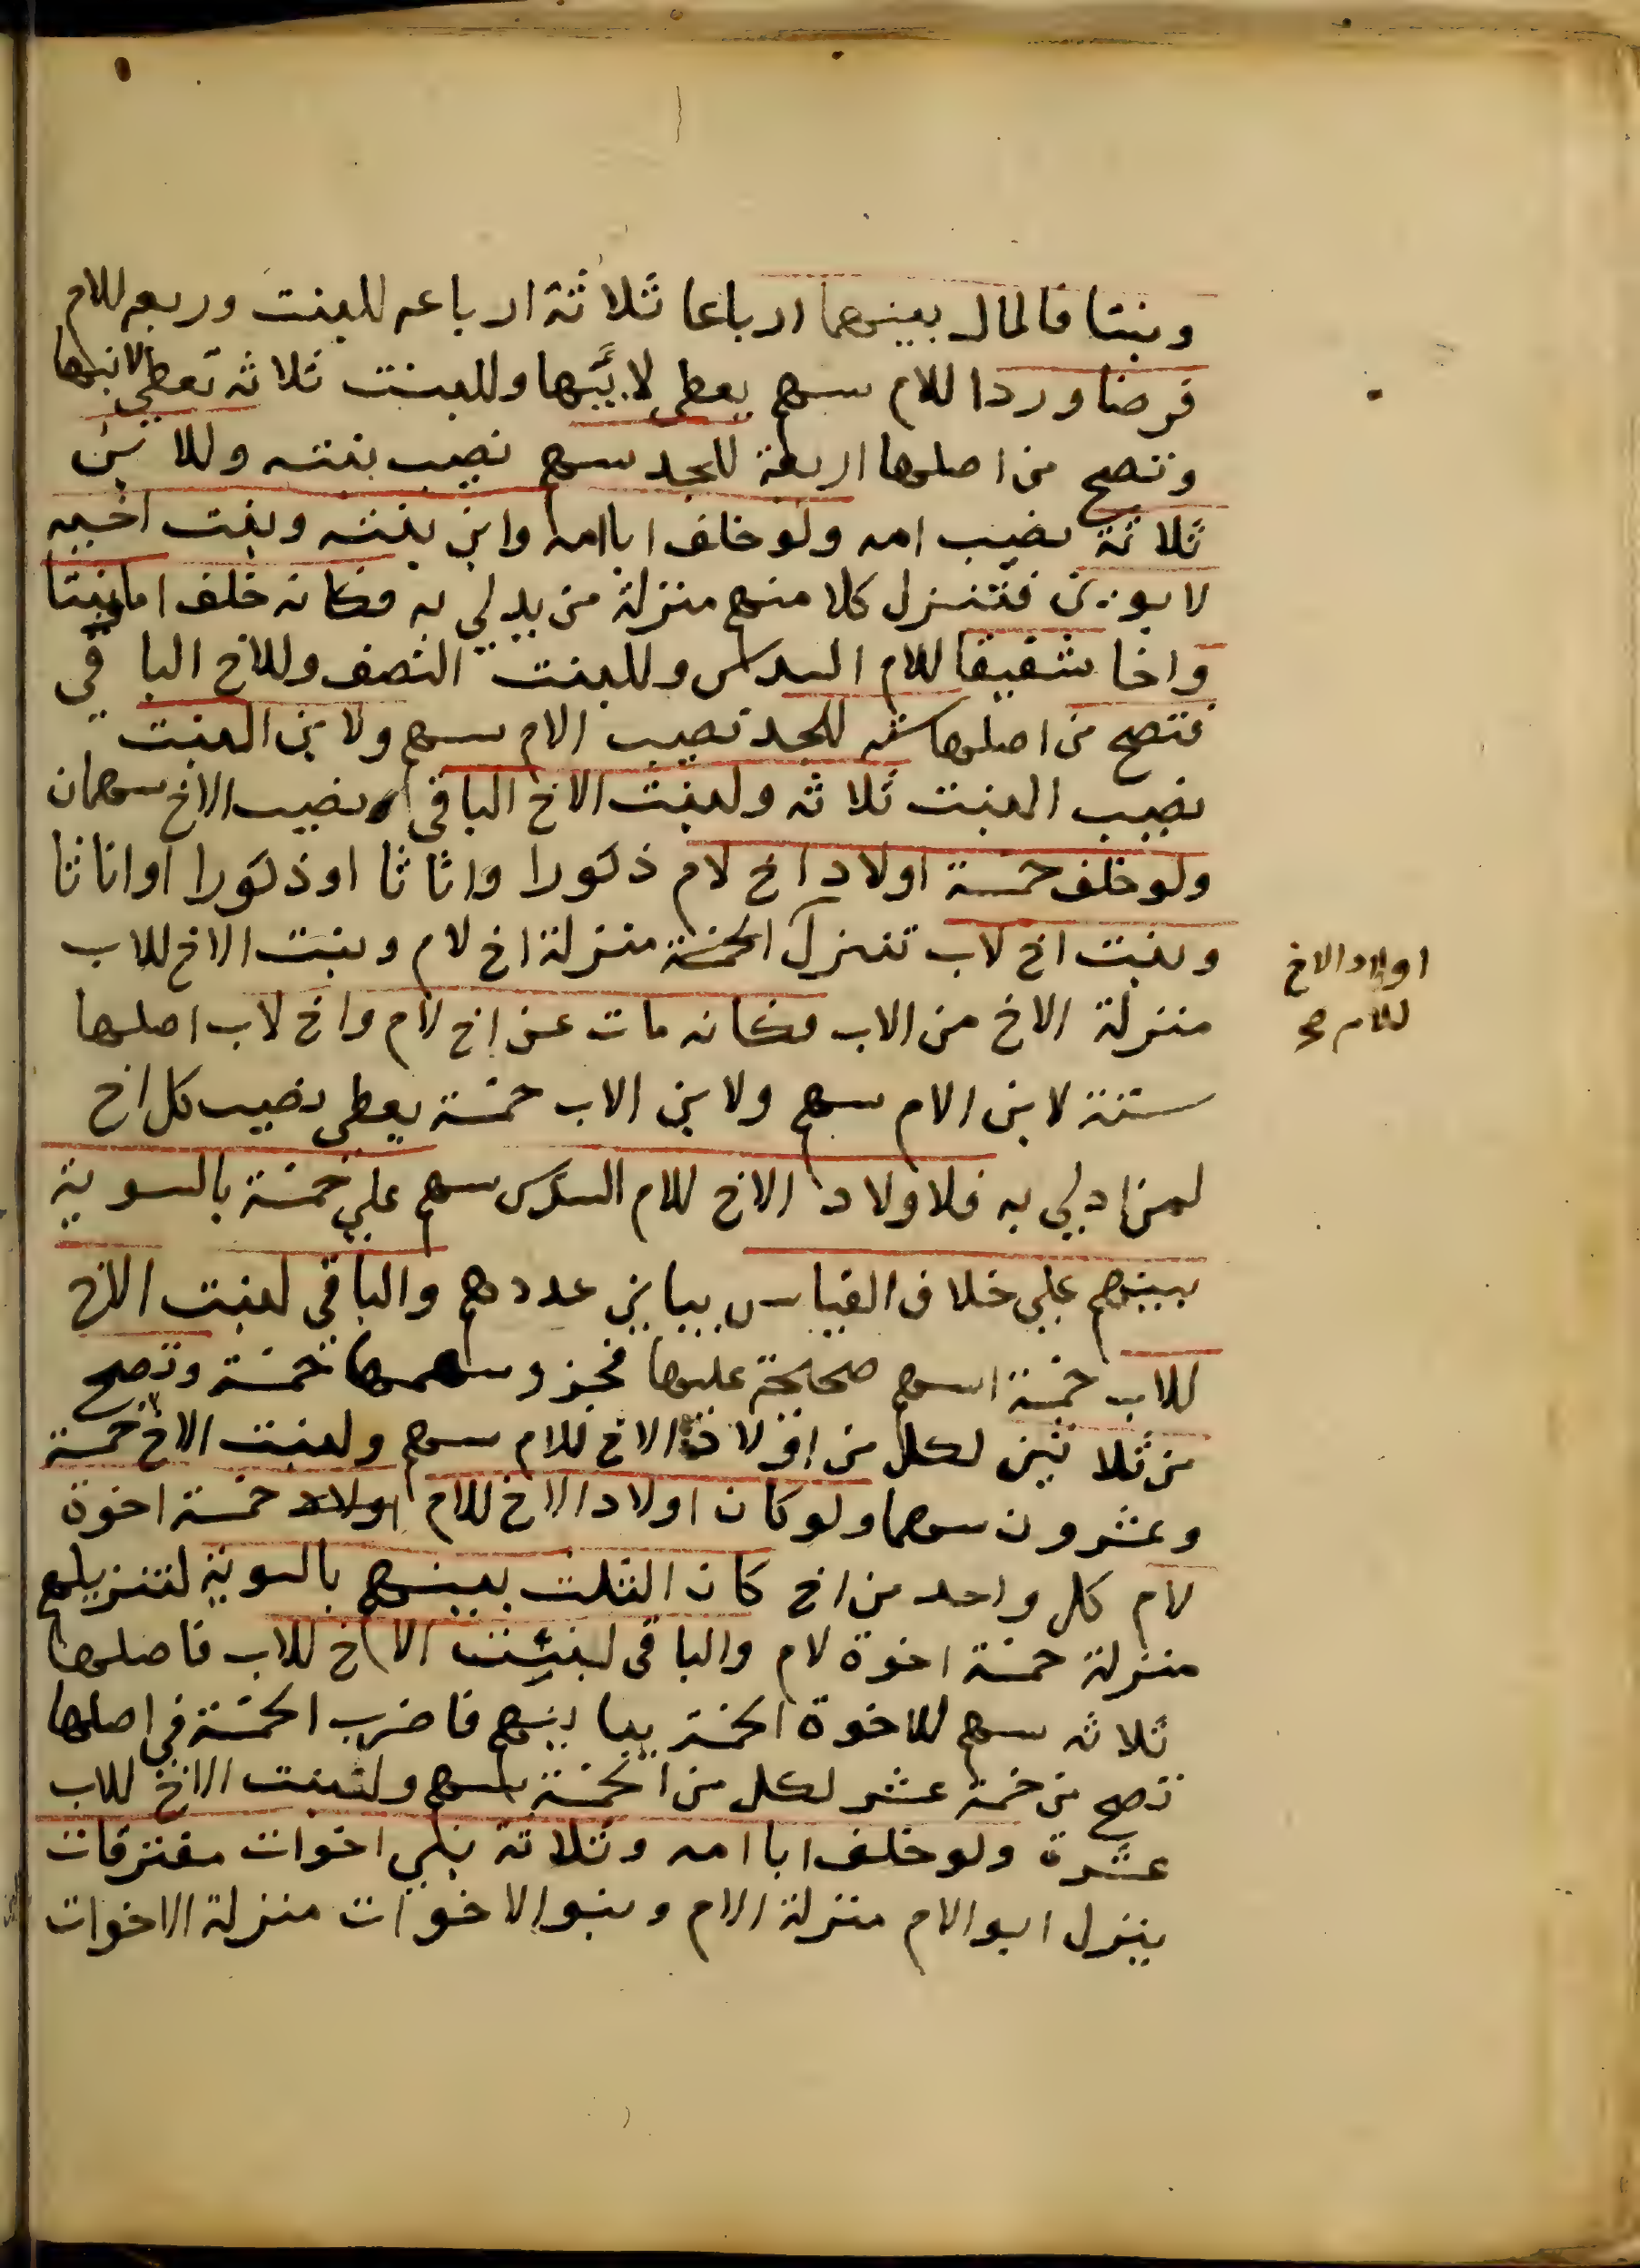 وبنتا فالمال بينهما ارباعا ثلاثة ارباعه للبنت وربعه للام
فرضا وردا للام سهم يعطى لابيها وللبنت ثلاثه تعطى لابنها
وتصح من اصلها اربعة للجد سهم نصيب بنته وللابن
ثلاثة نصيب امه ولو خلف ابا امه وابن بنته وبنت اخيه
لابوين فتنزل كلا منهم منزلة من يدلي به فكانه خلف اما وبنتا
واخا شقيقا للام السدس وللبنت النصف وللاخ الباقي
فتصح من اصلها سته للجد نصيب الام سهم ولابن البنت
نصيب البنت ثلاثه ولبنت الاخ الباقي نصيب الاخ سهمان
ولو خلف خمسة اولاد اخ لام ذكورا واناثا او ذكورا او اناثا
وبنت اخ لاب تنزل الخمسة منزلة اخ لام وبنت الاخ للاب
منزلة الاخ من الاب فكانه مات عن اخ لام واخ لاب اصلها
ستة لابن الام سهم ولابن الاب خمسة يعطى نصيب كل اخ
لمن ادلي به فلاولاد الاخ للام السدس سهم علي خمسة بالسوية
بينهم علي خلاف القياس يباين عددهم والباقي لبنت الاخ
للاب خمسة اسهم صحيحة عليها فجزو سهمها خمسة وتصح
من ثلاثين لكل من اولاد الاخ للام سهم ولبنت الاخ خمسة
وعشرون سهما ولو كان اولاد الاخ للام اولاد خمسة اخوة
لام كل واحد من اخ كان الثلث بينهم بالسوية لتنزيلهم
منزلة خمسة اخوة لام والباقي لبنت الاخ للاب فاصلها
ثلاثه سهم للاخوة الخمسة يباينهم فاضرب الخمسة في اصلها
تصح من خمسة عشر لكل من الخمسة سهم ولبنت الاخ للاب
عشرة ولو خلف ابا امه وثلاثة بني اخوات مفترقات
ينزل ابو الام منزلة الام وبنو الاخوات منزلة الاخوات
اولاد الاخ
للام صح